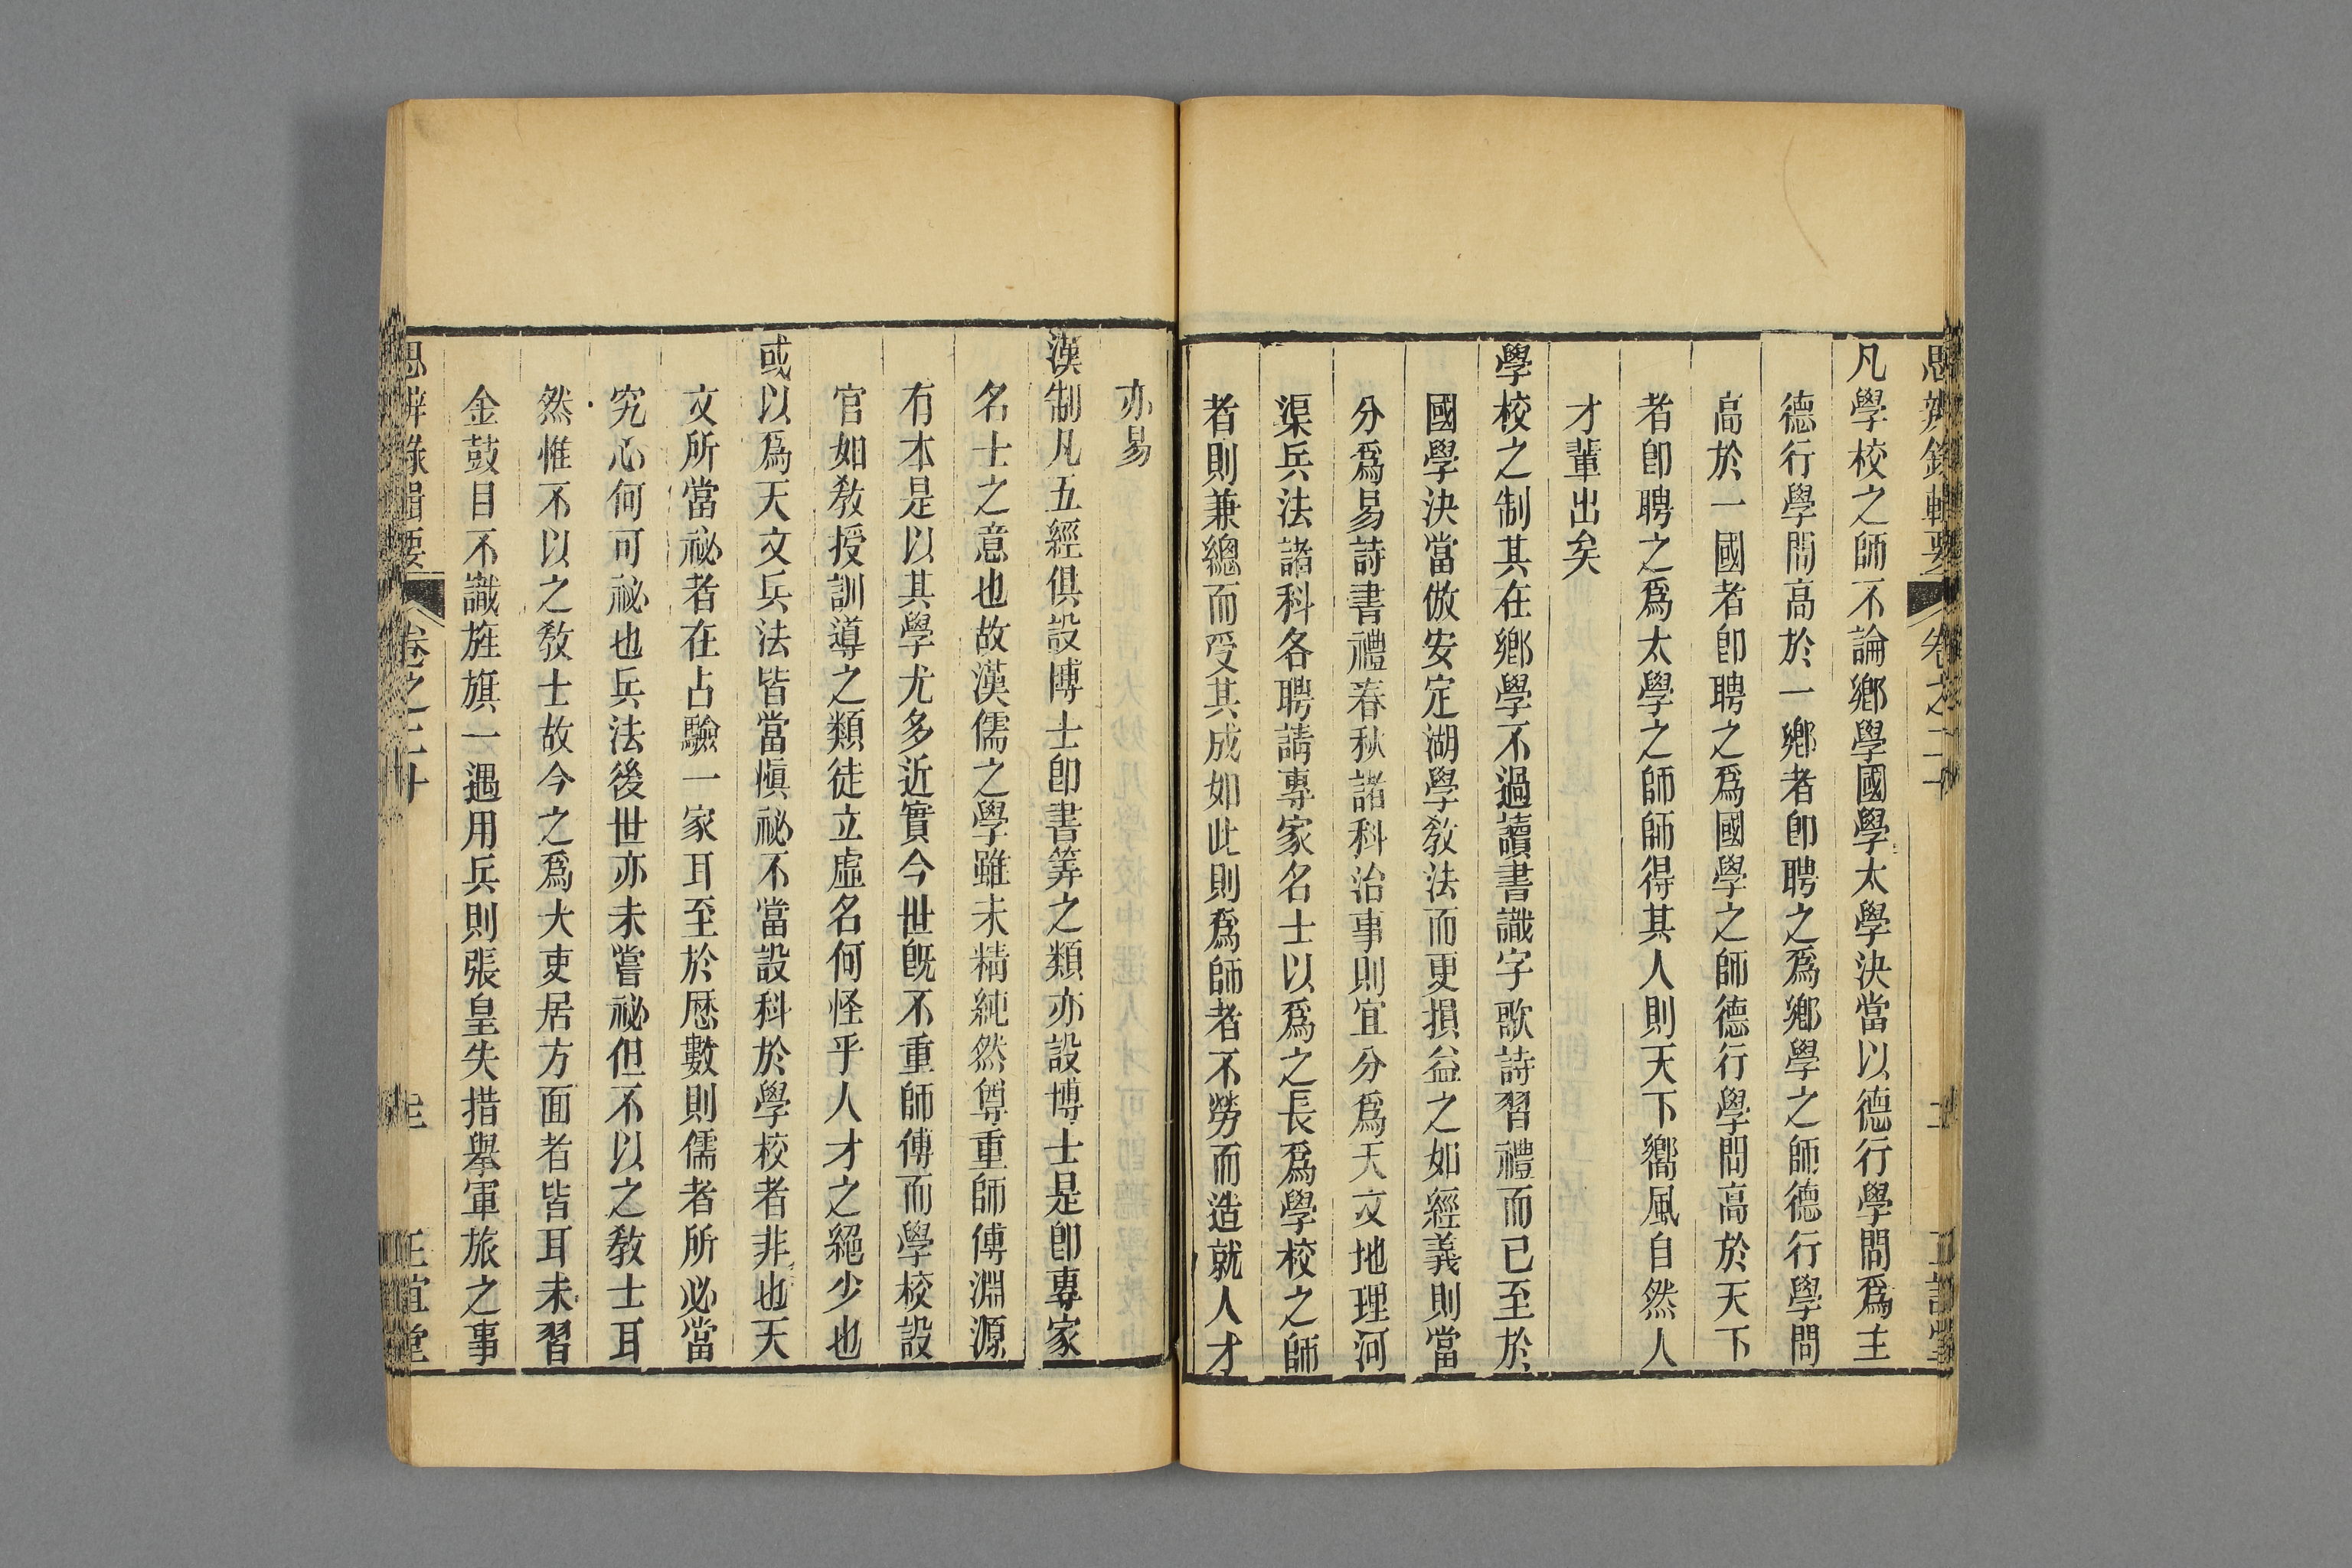 凡學校之師不論鄉學國學太學決當以德行學問爲主
德行學問高於一鄉者卽聘之爲鄉學之師德行學問
高於一國者卽聘之爲國學之師德行學問高於天下
者卽聘之爲太學之師師得其人則天下嚮風自然人
才輩出矣
學校之制其在鄉學不過讀書識字歌詩習禮而已至於
國學決當倣安定湖學教法而更損益之如經義則當
分爲易詩書禮春秋諸科治事則宜分爲天文地理河
渠兵法諸科各聘請專家名士以爲之長爲學校之師
者則兼總而受其成如此則爲師者不勞而造就人才
亦易
漢制凡五經俱設博士卽書筭之類亦設博士是卽專家
名士之意也故漢儒之學雖未精純然尊重師傅淵源
有本是以其學尤多近實今世旣不重師傅而學校設
官如教授訓導之類徒立虛名何怪乎人才之絕少也
或以爲天文兵法皆當愼祕不當設科於學校者非也天
文所當祕者在占驗一家耳至於厯數則儒者所必當
究心何可祕也兵法後世亦未嘗祕但不以之教士耳
然惟不以之教士故今之爲大吏居方面者皆耳未習
金鼓目不識旌旗一遇用兵則張皇失措舉軍旅之事
思辨錄輯要 卷之二十 正誼堂